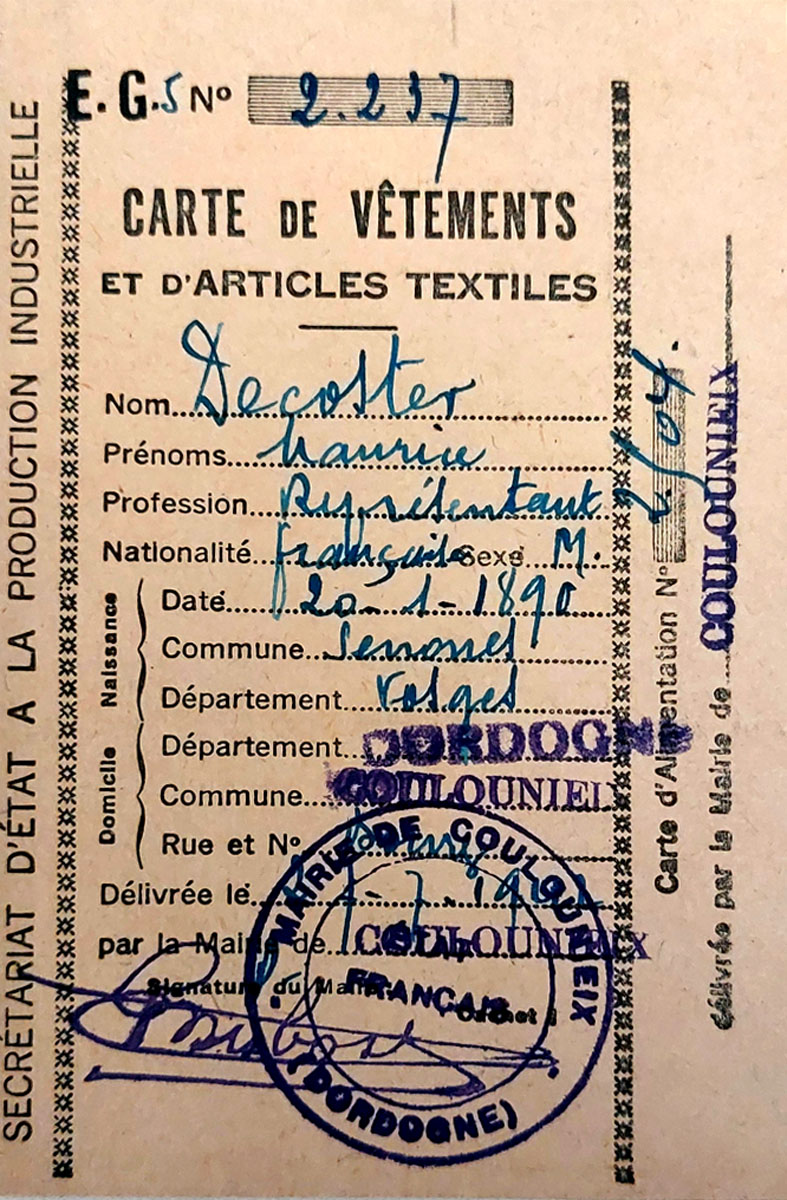 SECRÉTARIAT D'ÉTAT A LA PRODUCTION INDUSTRIELLE
E. G.5 No 2.237
CARTE DE VÊTEMENTS
ET D'ARTICLES TEXTILES
Nom Decoster
Prénoms Maurice
Profession Représentant
Nationalité française Sexe M.
Naissance
Date 20-1-1890
Commune Senones
Département Vosges
Domicile
Département DORDOGNE
Commune COULOUNIEIX
Rue et No
Délivrée le
par la Mairie de COULOUNIEIX
Signature du Maire, Cachet :
MAIRIE DE COULOUNIEIX
ÉTAT
FRANÇAIS
(DORDOGNE)
Carte d'Alimentation No 2504.
délivrée par la Mairie de COULOUNIEIX